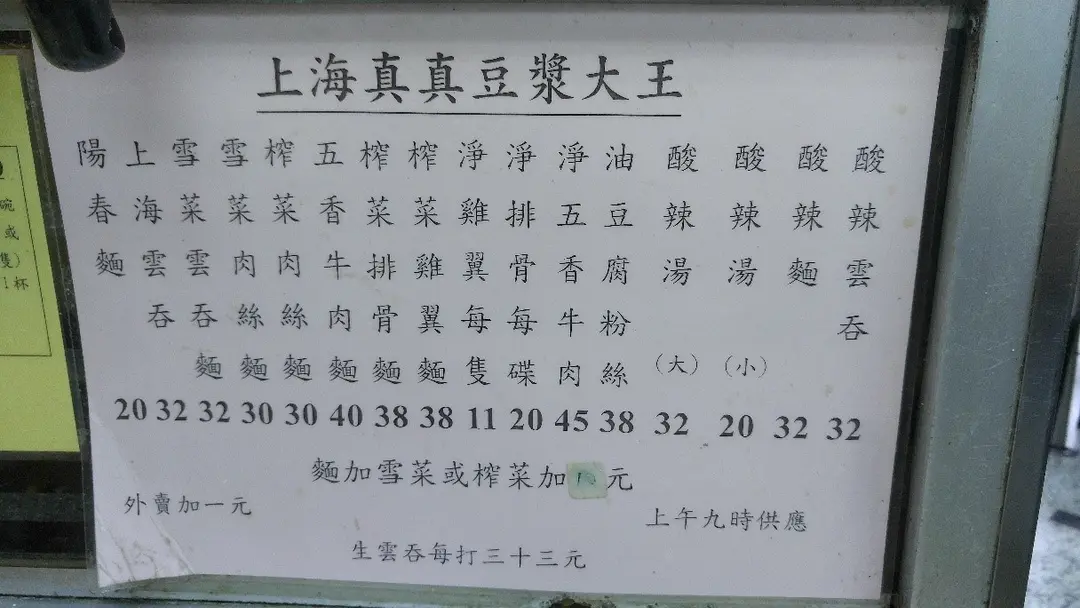 上海真真豆漿大王
陽春麵 20
上海雲吞 32
雪菜雲吞麵 32
雪菜肉絲麵 30
榨菜肉絲麵 30
五香牛肉麵 40
榨菜排骨麵 38
榨菜雞翼麵 38
淨雞翼每隻 11
淨排骨每碟 20
淨五香牛肉 45
油豆腐粉絲 38
酸辣湯（大） 32
酸辣湯（小） 20
酸辣麵 32
酸辣雲吞 32
麵加雪菜或榨菜加元
外賣加一元
上午九時供應
生雲吞每打三十三元
碗
或
隻）
杯